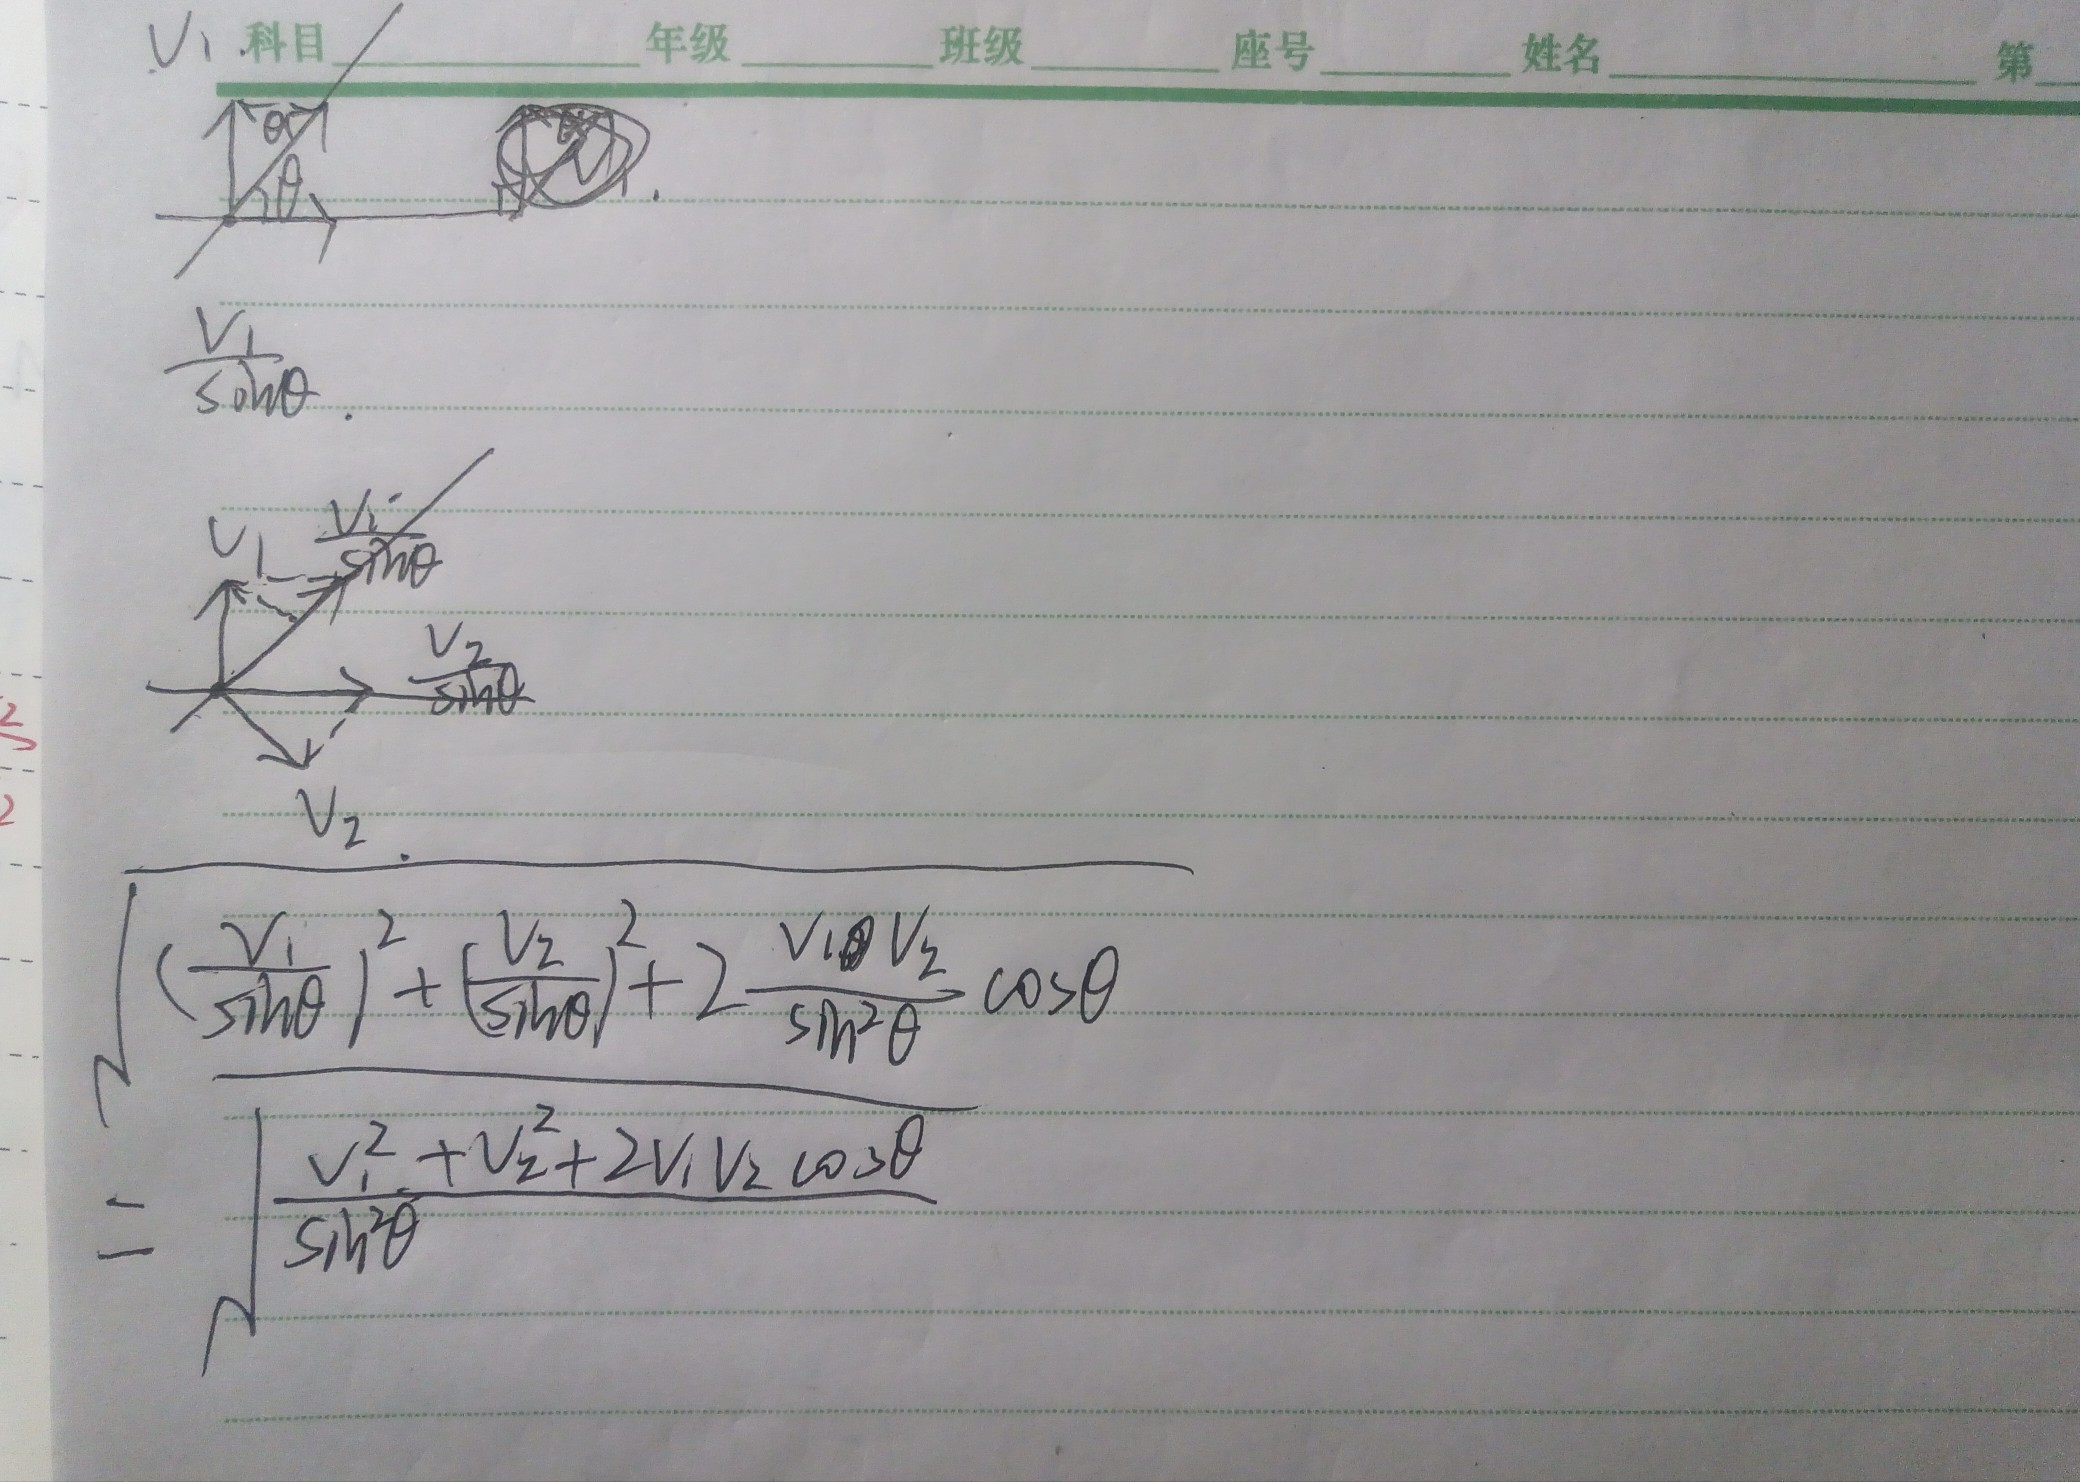 V₁.
科目 年级 班级 座号 姓名 第
θ
θ
V₁/sinθ.
V₁ V₁/sinθ
V₂/sinθ
V₂.
√((V₁/sinθ)²+(V₂/sinθ)²+2 V₁V₂/sin²θ cosθ)
=√((V₁²+V₂²+2V₁V₂cosθ)/sin²θ)